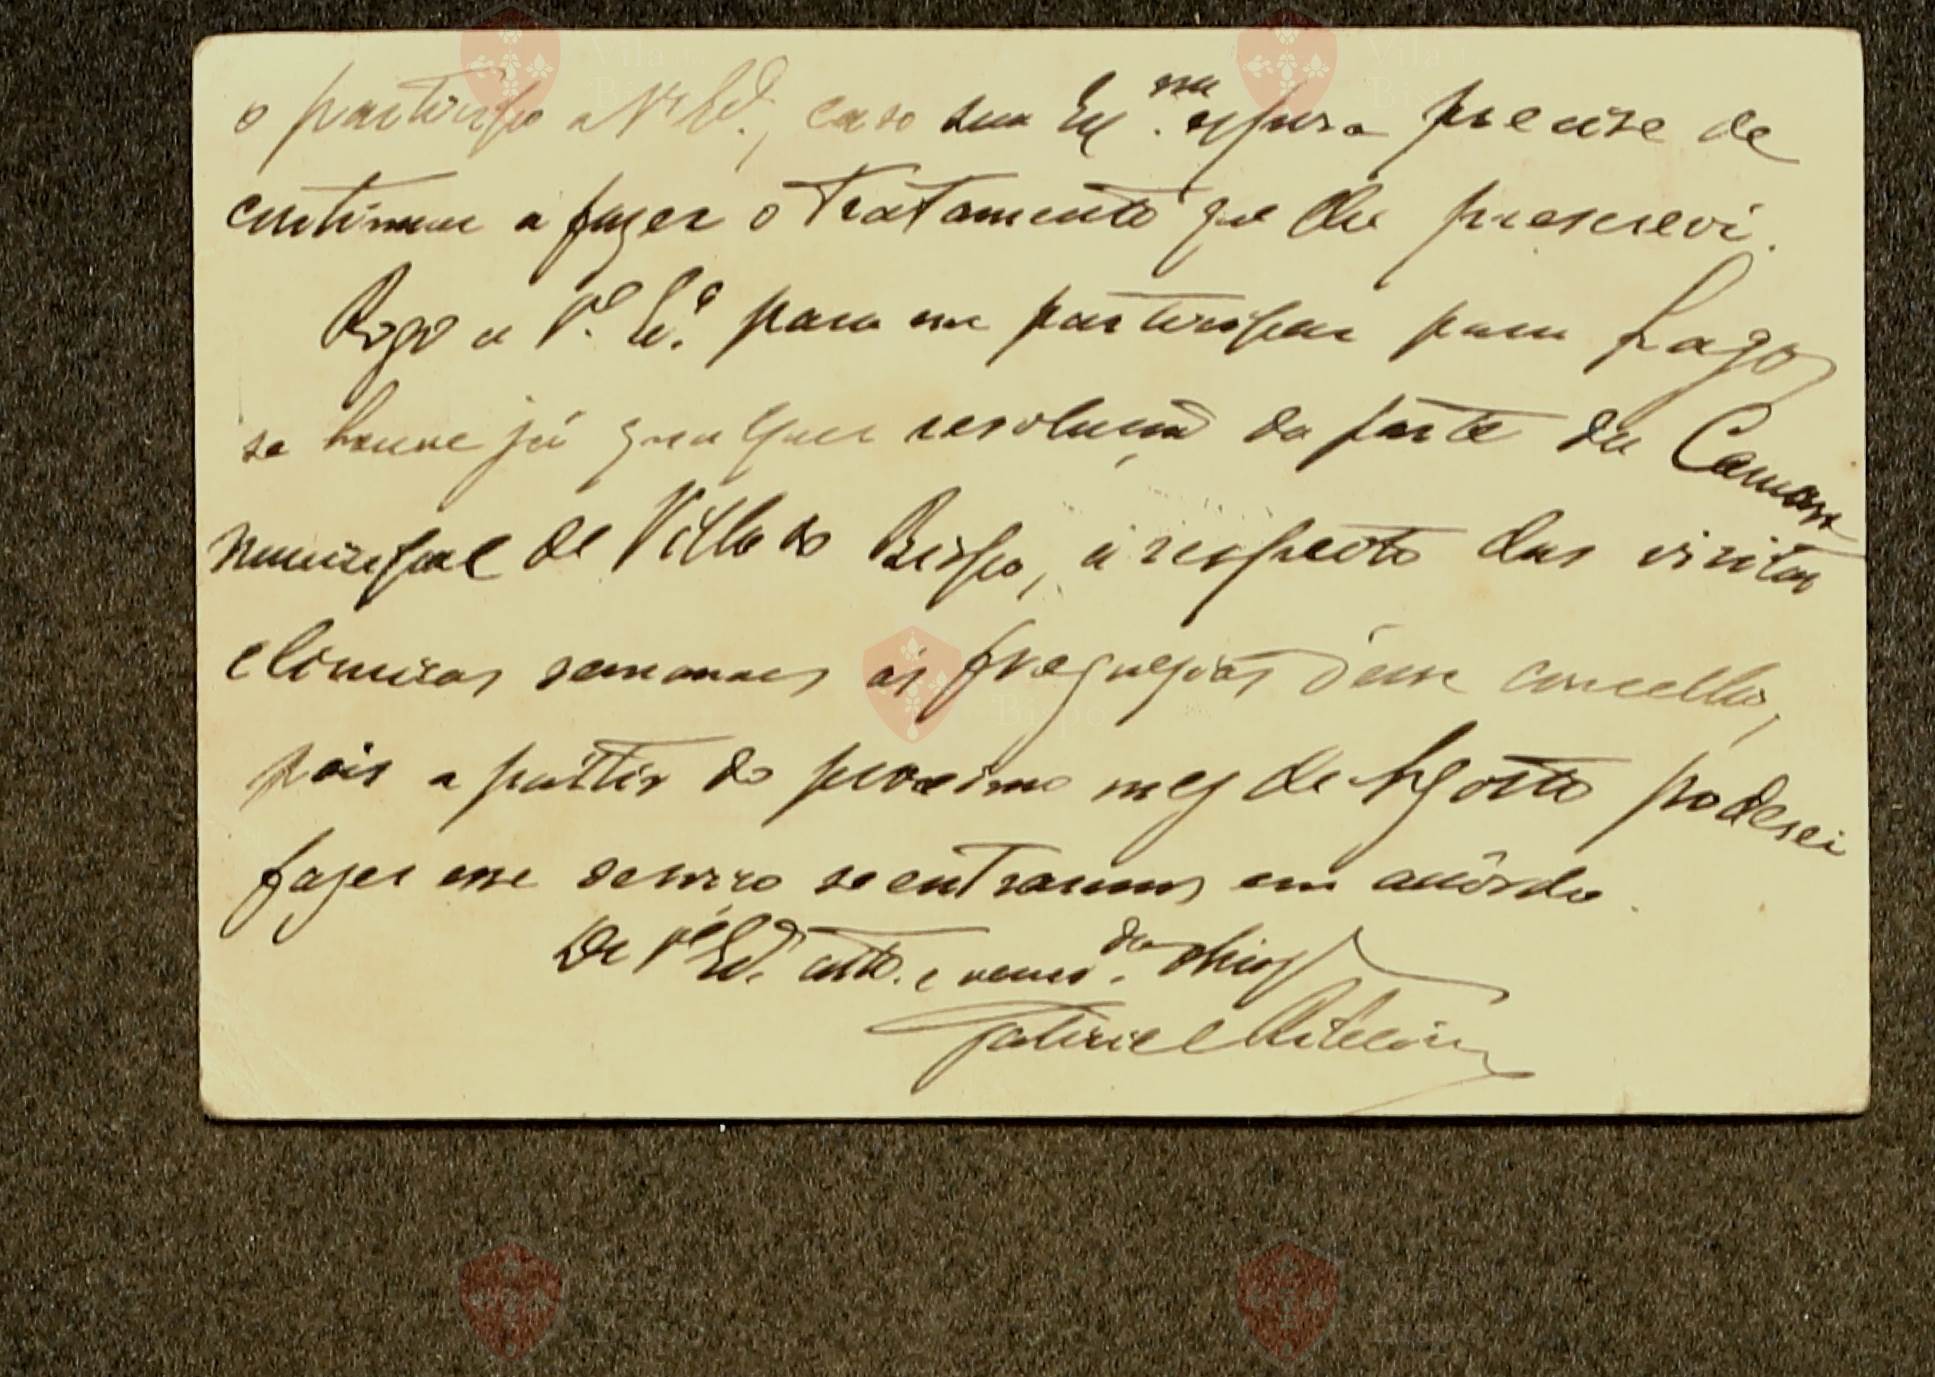 o participo a V.ª Ex.ª, caso sua Ex.ma esposa precise de
continuar a fazer o tratamento que lhe prescrevi.
Rogo a V.ª Ex.ª para me participar para Lagos
se houve já qualquer resolução da parte da Camara
Municipal de Villa do Bispo, a respeito das visitas
clinicas semanaes ás freguezias d'esse concelho,
pois a partir do proximo mez de Agosto poderei
fazer esse serviço se entrarmos em acôrdo.
De V.ª Ex.ª att.º e vener.dor obrig.
Gabriel